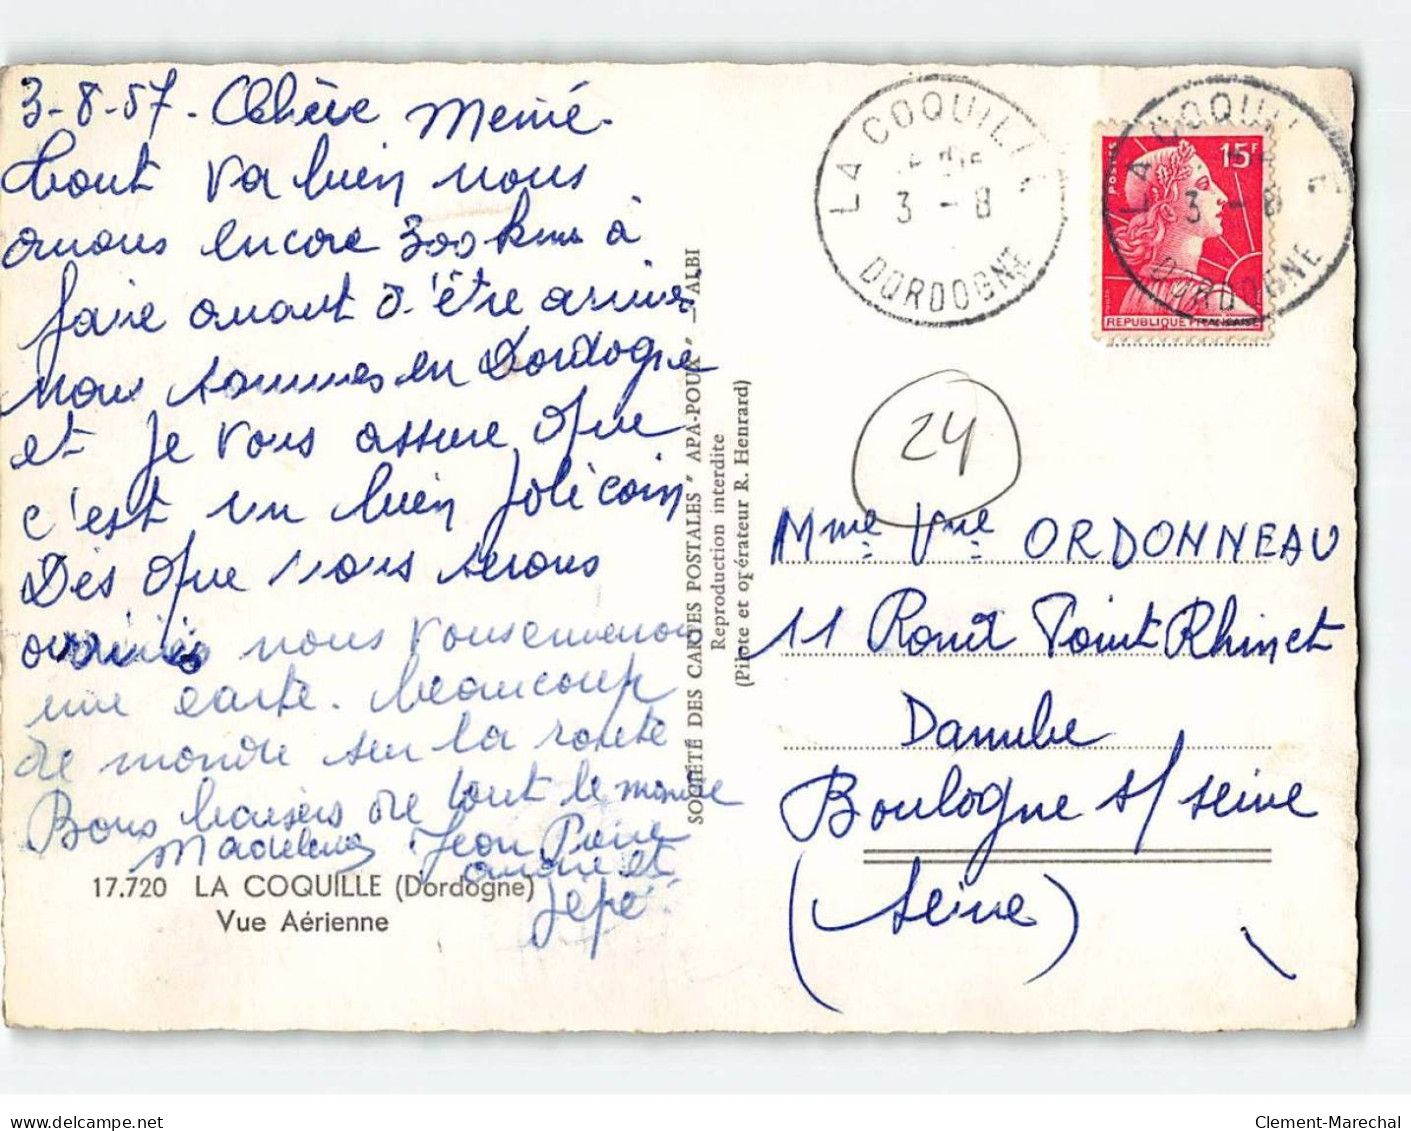 3-8-57. Chère Mémé.
tout va bien nous
avons encore 300 kms à
faire avant d'être arrivés
nous sommes en Dordogne
et je vous assure que
c'est un bien joli coin
Dès que nous serons
arrivés nous vous enverrons
une carte. beaucoup
de monde sur la route
Bons baisers de tout le monde
Madeleine Jean Pierre
André et
Jépé.
17.720 LA COQUILLE (Dordogne)
Vue Aérienne
SOCIÉTÉ DES CARTES POSTALES "APA-POUX" — ALBI
Reproduction interdite
(Pilote et opérateur R. Henrard)
LA COQUILLE
3 - 8
DORDOGNE
LA COQUILLE
3 - 8
DORDOGNE
POSTES
15F
REPUBLIQUE FRANÇAISE
24
Mme Vve ORDONNEAU
11 Rond Point Rhin et
Danube
Boulogne s/ seine
(seine)
Clement-Marechal